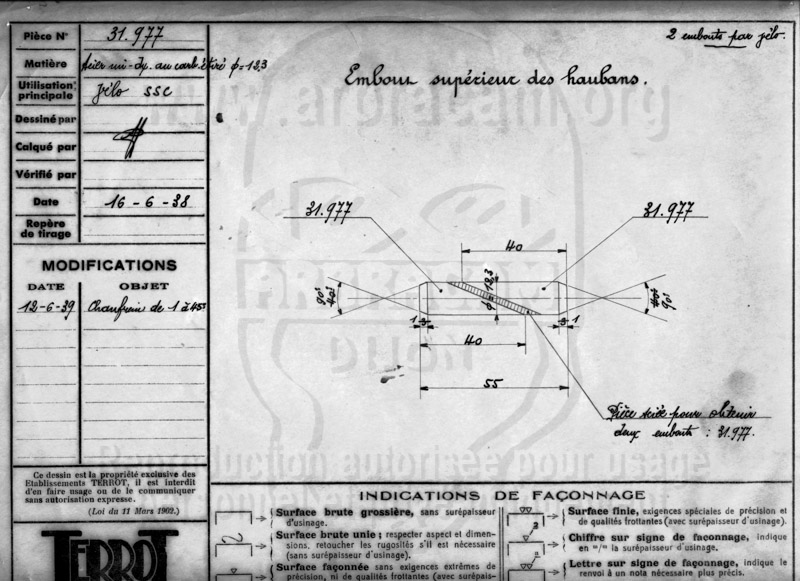 Pièce N° 31.977
Matière Acier mi-dx. au carb. étiré φ=13,3
Utilisation principale Vélo SSC
Dessiné par
Calqué par
Vérifié par
Date 16-6-38
Repère de tirage
MODIFICATIONS
DATE OBJET
12-6-39 Chanfrein de 1 à 45°
Ce dessin est la propriété exclusive des
Etablissements TERROT, il est interdit
d'en faire usage ou de le communiquer
sans autorisation expresse.
(Loi du 11 Mars 1902.)
TERROT
2 embouts par vélo.
Embout supérieur des haubans.
www.arbracam.org
31.977
31.977
40
φ 13,3
90°
40°
40°
90°
1 3
3 1
40
55
Pièce sciée pour obtenir
deux embouts : 31.977.
ARBRACAM
DIJON
Reproduction autorisée pour usage
INDICATIONS DE FAÇONNAGE
Surface brute grossière, sans surépaisseur
d'usinage.
Surface brute unie; respecter aspect et dimen-
sions, retoucher les rugosités s'il est nécessaire
(sans surépaisseur d'usinage).
Surface façonnée sans exigences extrêmes de
précision, ni de qualités frottantes (avec surépais-
Surface finie, exigences spéciales de précision et
de qualités frottantes (avec surépaisseur d'usinage).
Chiffre sur signe de faconnage, indique
en m/m la surépaisseur d'usinage.
Lettre sur signe de façonnage, indique le
renvoi à un nota nécessaire plus précis.